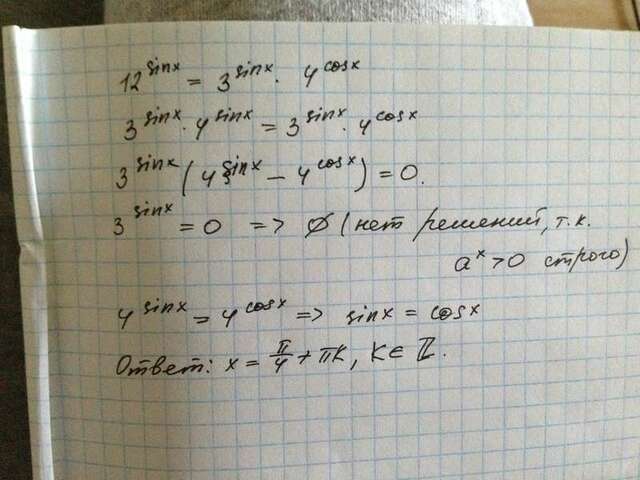 12^sinx = 3^sinx · 4^cosx
3^sinx · 4^sinx = 3^sinx · 4^cosx
3^sinx (4^sinx − 4^cosx) = 0.
3^sinx = 0 => ∅ (нет решений, т.к.
a^x > 0 строго)
4^sinx = 4^cosx => sinx = cosx
Ответ: x = π/4 + πk, k ∈ ℤ.